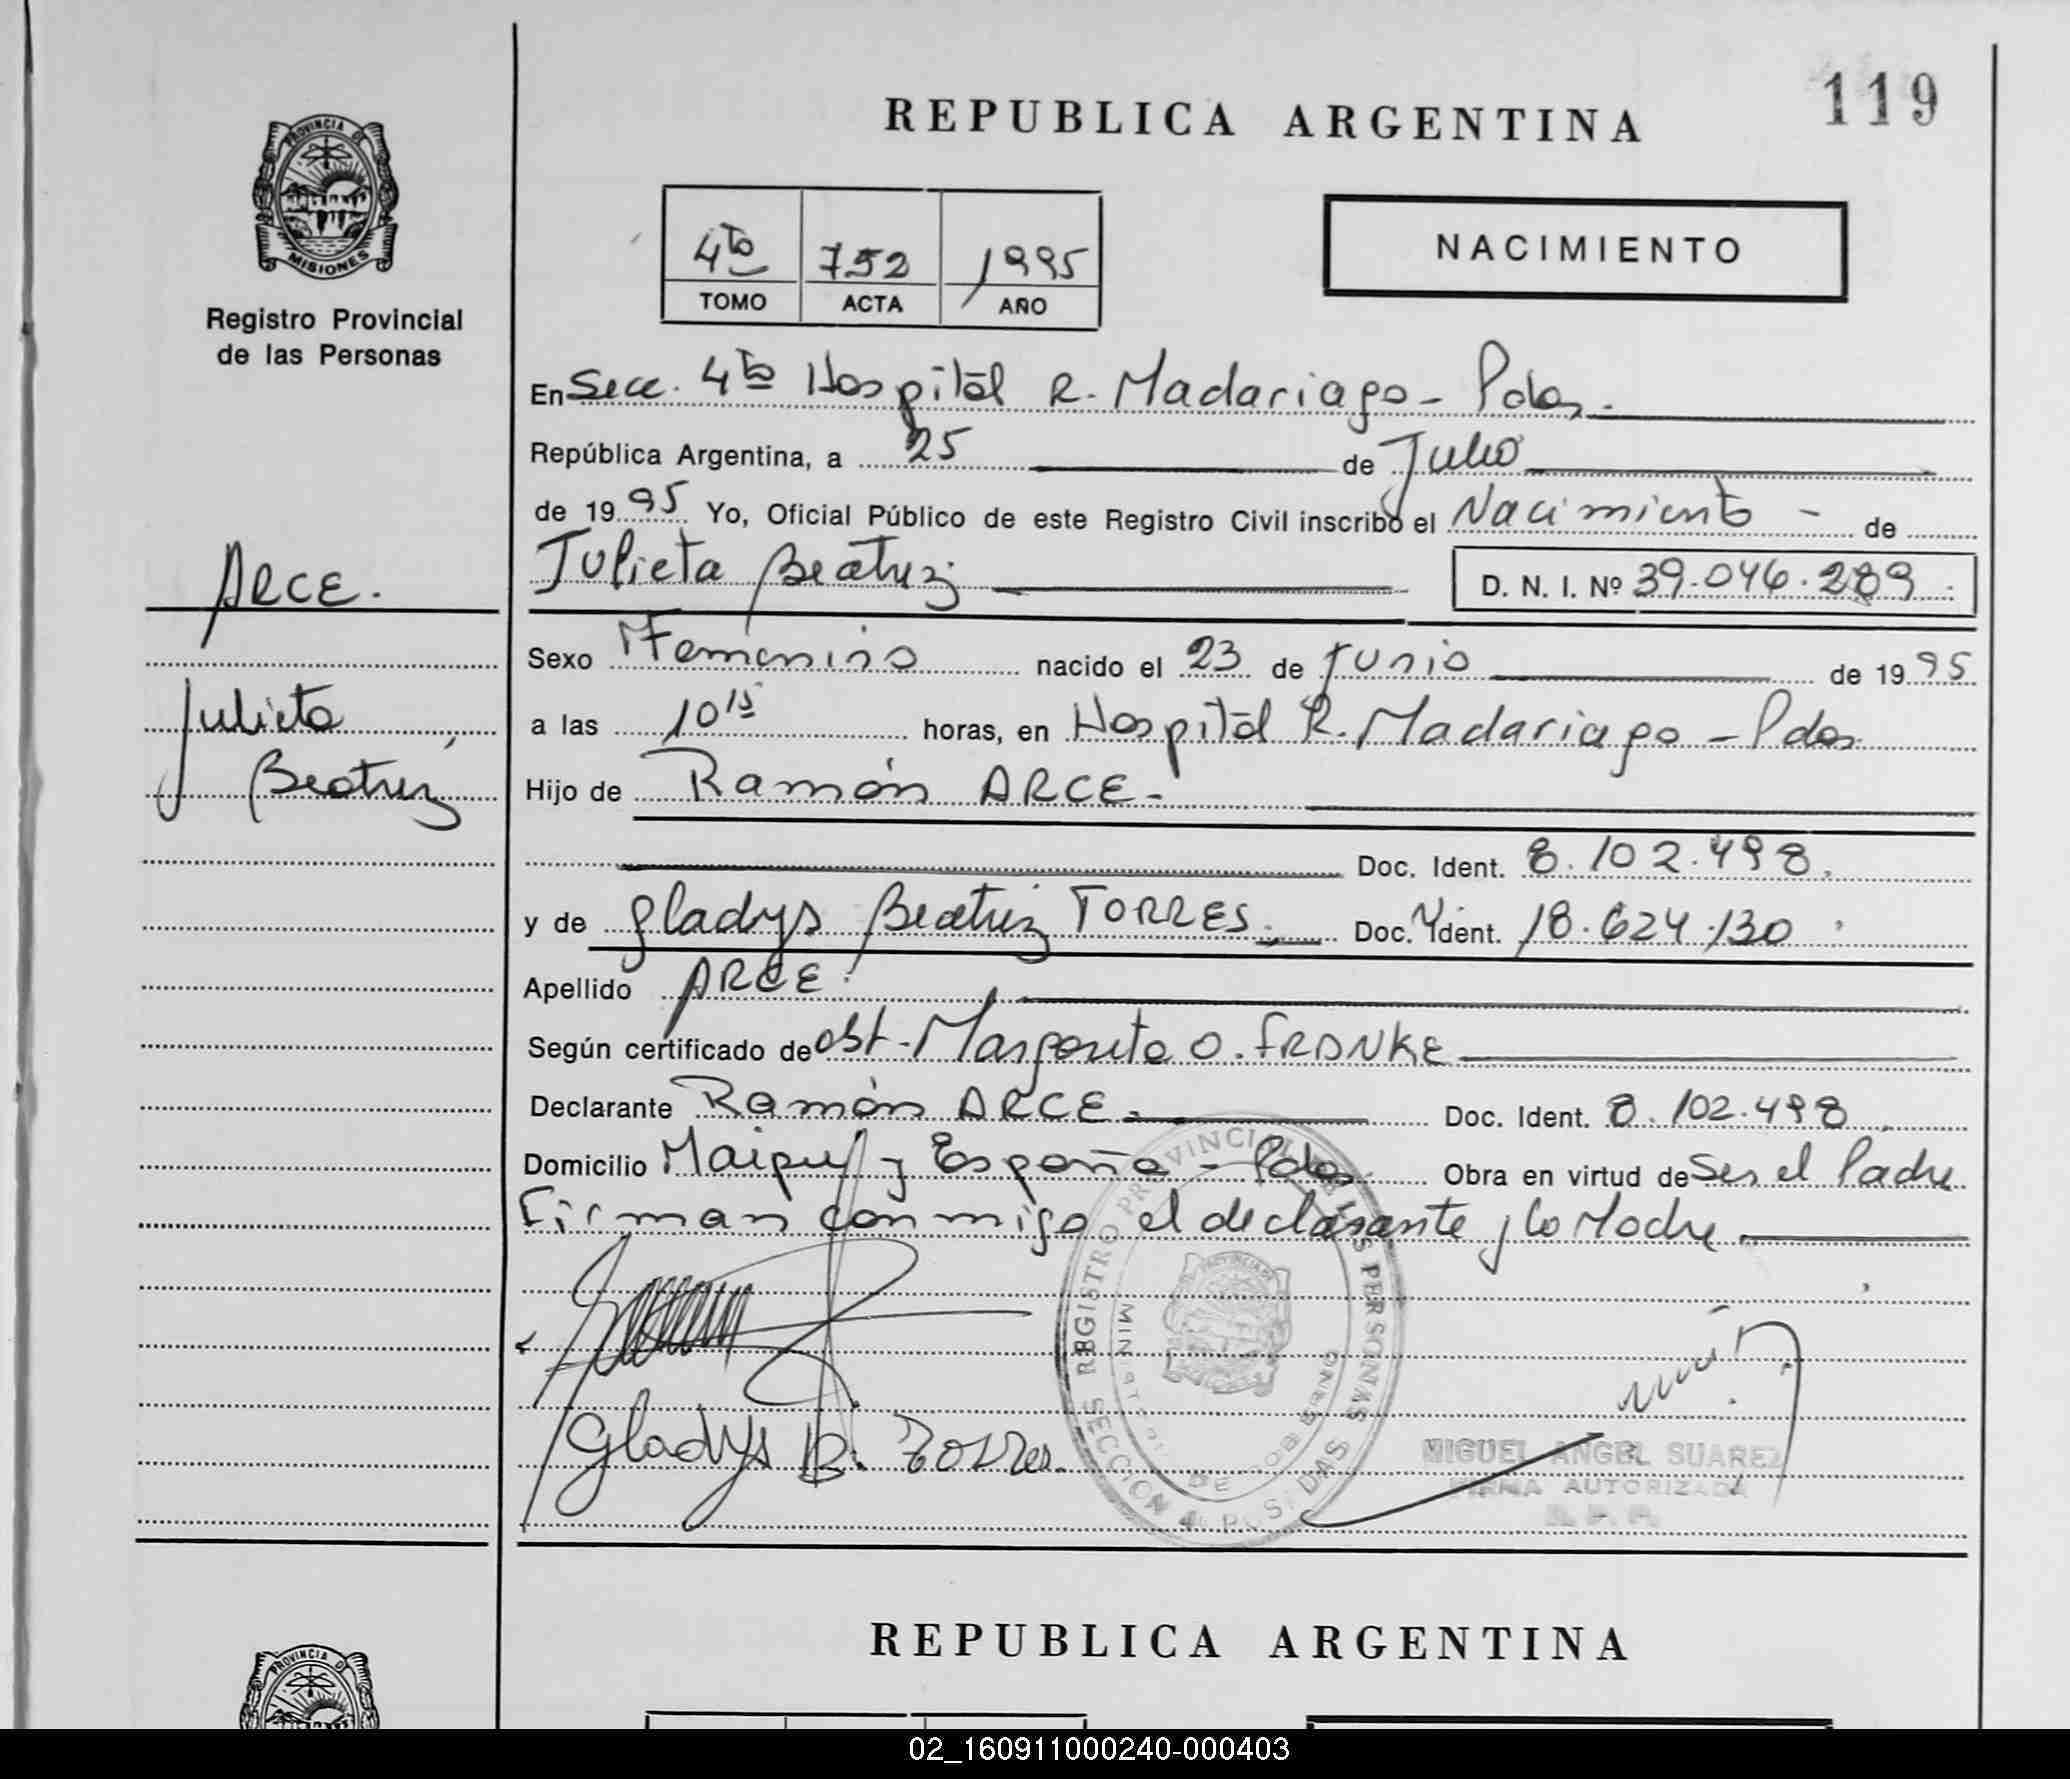 119
REPUBLICA ARGENTINA
PROVINCIA DE
MISIONES
Registro Provincial
de las Personas
4to 752 1995
TOMO ACTA AÑO
NACIMIENTO
En Secc. 4ta Hospital R. Madariaga - Pdas.
República Argentina, a 25 de Julio
de 1995 Yo, Oficial Público de este Registro Civil inscribo el Nacimiento - de
ARCE.
Julieta Beatriz
D. N. I. Nº 39.046.289.
Sexo Femenino nacido el 23 de Junio de 1995
Julieta
Beatriz
a las 10 15 horas, en Hospital R. Madariaga - Pdas
Hijo de Ramón ARCE.-
Doc. Ident. 8.102.498.
y de Gladys Beatriz TORRES. Doc. Ident. 18.624.130
Apellido ARCE.
Según certificado de Obst. Margarita O. FRANKE
Declarante Ramón ARCE. Doc. Ident. 8.102.498.
Domicilio Maipu y España - Pdas. Obra en virtud de Ser el Padre
Firman conmigo el declarante y la Madre
Gladys B. Torres.
REGISTRO PROVINCIAL DE LAS PERSONAS
MINISTERIO DE GOBIERNO
SECCION 4a POSADAS
MIGUEL ANGEL SUAREZ
FIRMA AUTORIZADA
REPUBLICA ARGENTINA
PROVINCIA D
02_160911000240-000403